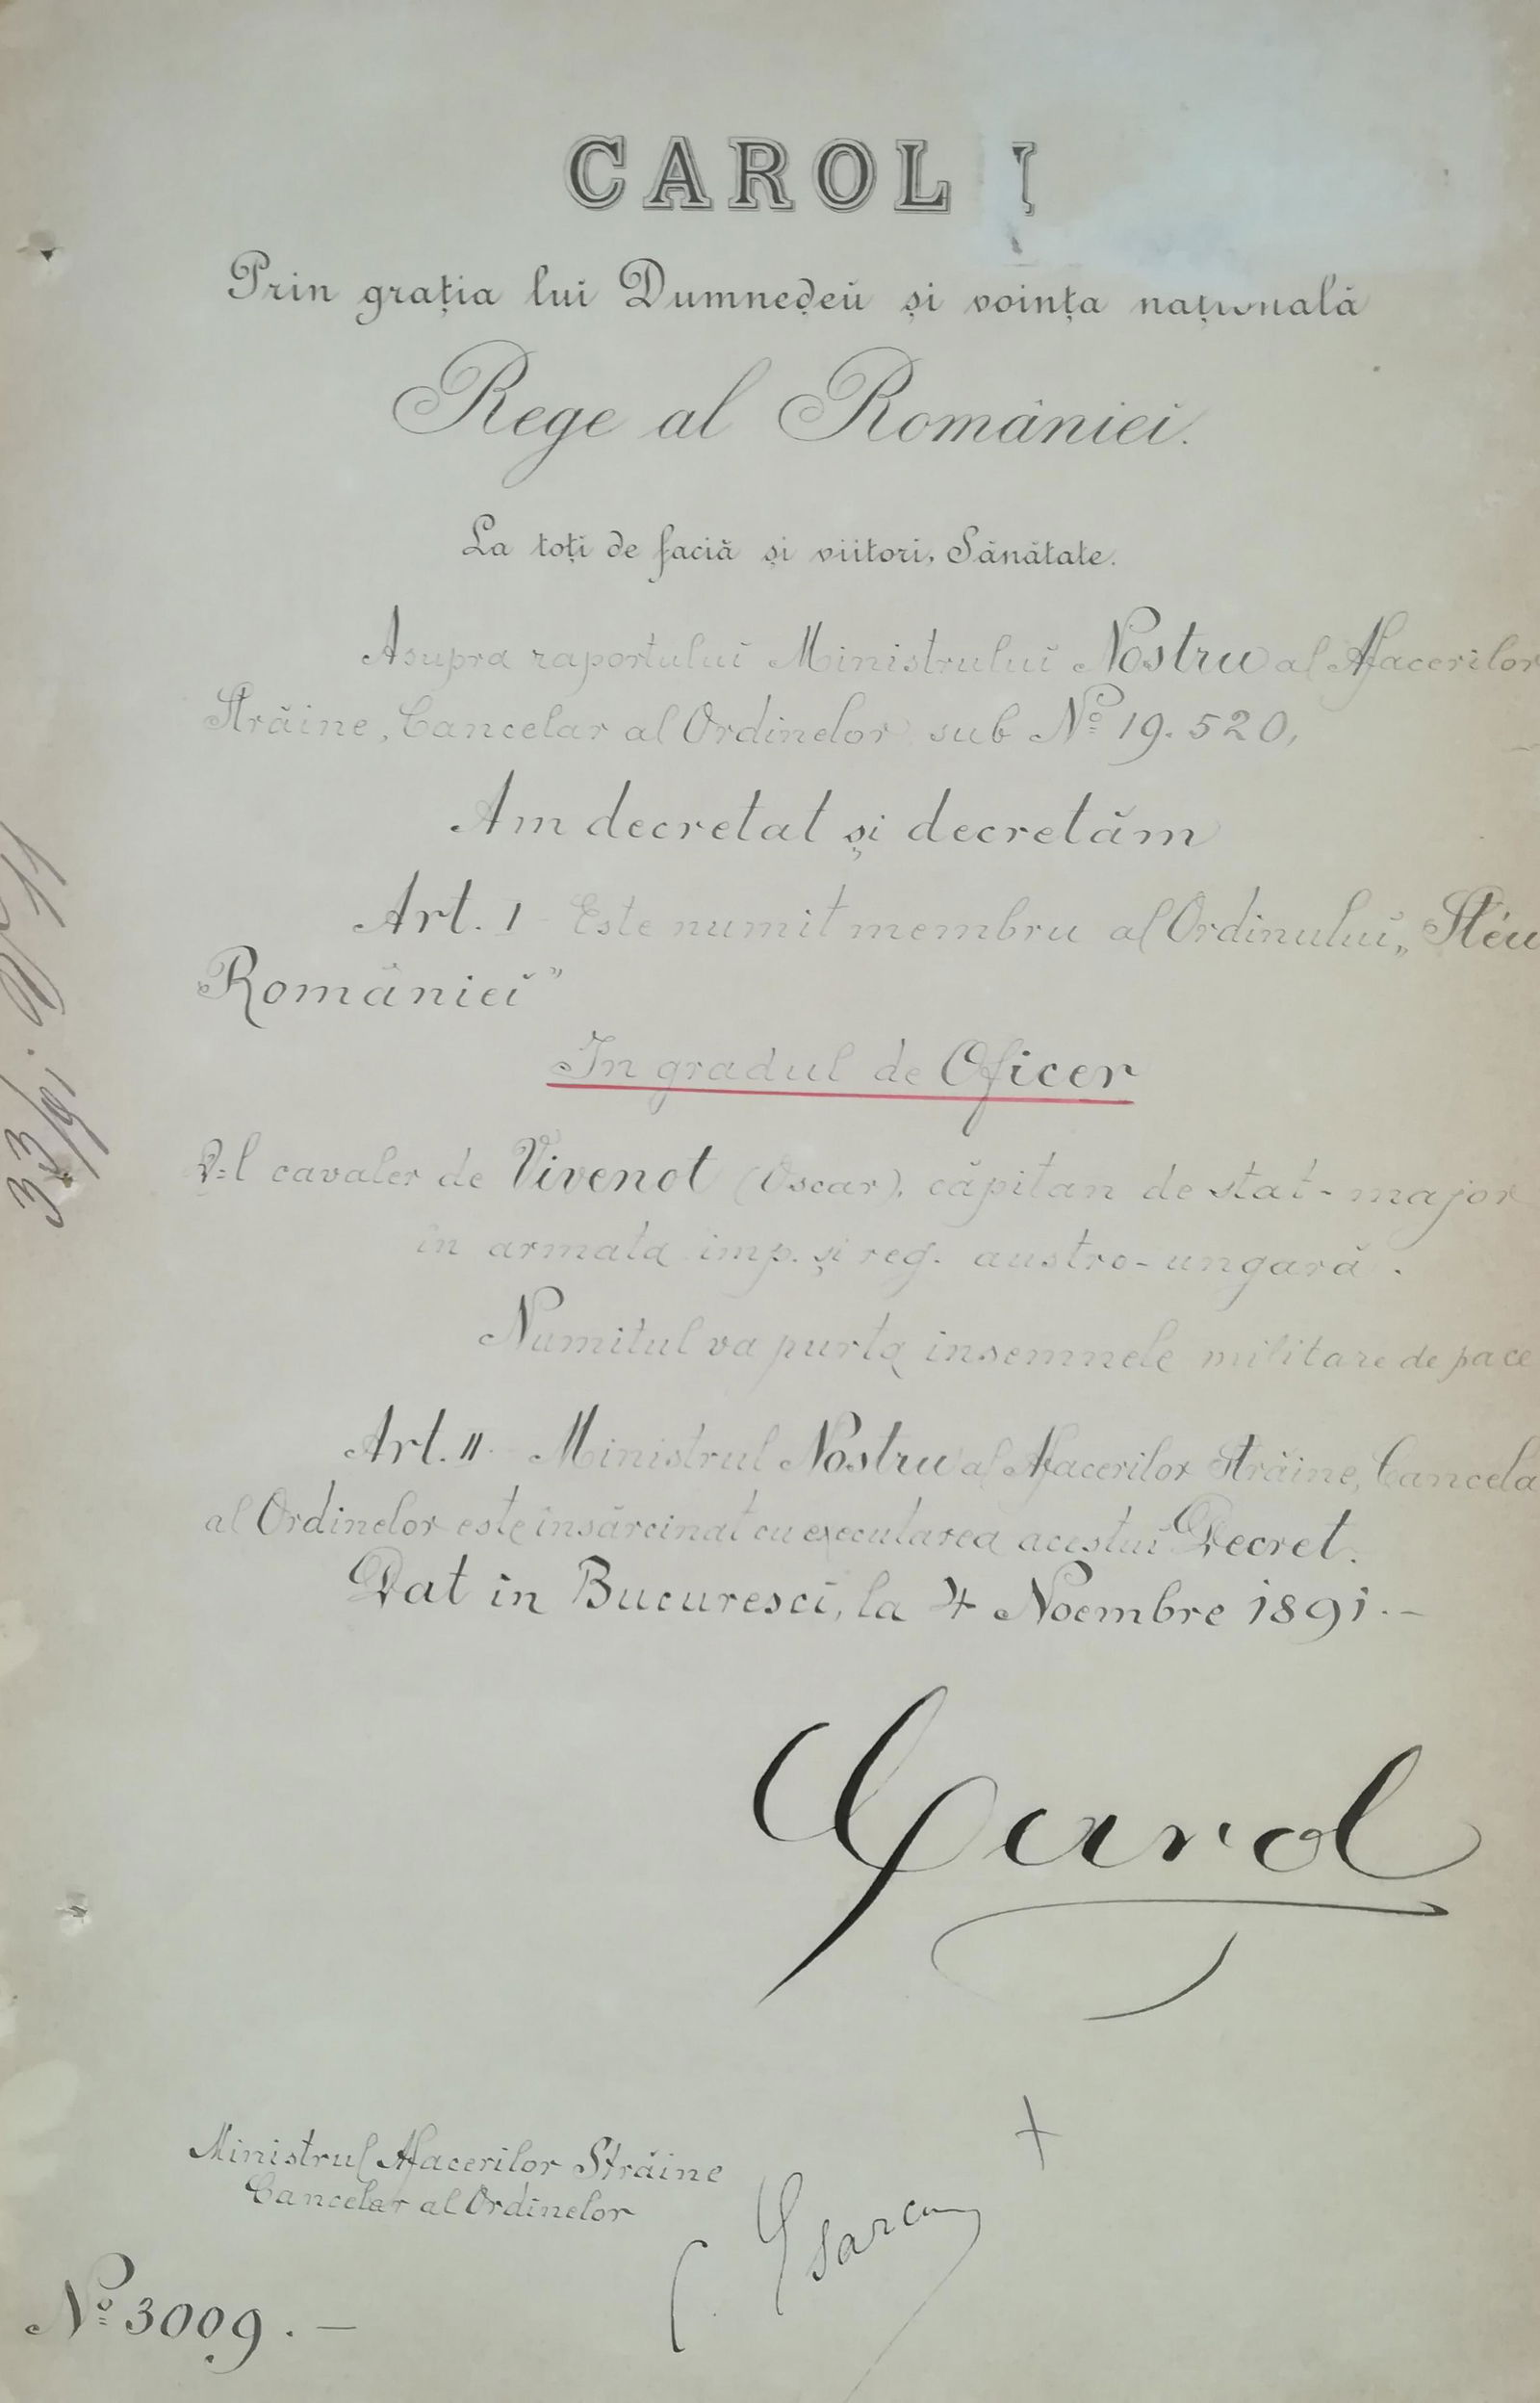 CAROL I
Prin grația lui Dumnedeŭ și voința națională
Rege al Românieĭ.
La toți de faciă și viitori, Sănătate.
Asupra raportuluĭ Ministruluĭ Nostru al Afacerilor
Străine, Cancelar al Ordinelor sub Nº 19.520,
Am decretat și decretăm
Art. I Este numit membru al Ordinuluĭ „Stéu
Românieĭ”
In gradul de Oficer
D-l cavaler de Vivenot (Oscar), căpitan de stat-major
în armata imp. și reg. austro-ungară.
Numitul va purta insemnele militare de pace
Art. II. Ministrul Nostru al Afacerilor Străine, Cancela
al Ordinelor este însărcinat cu executarea acestuĭ Decret.
Dat in Bucurescĭ, la 4 Noembre 1891.-
Carol
Ministrul Afacerilor Străine
Cancelar al Ordinelor
C. Esarcu
Nº 3009.-
33/91.